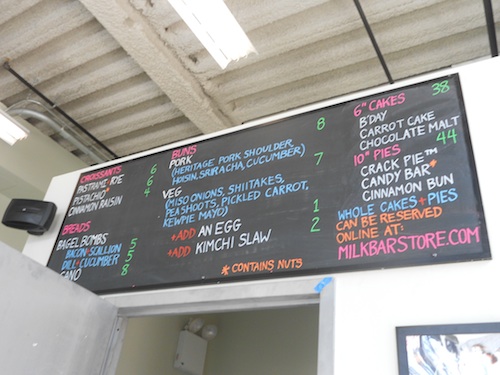 CROISSANTS
PASTRAMI-RYE 6
PISTACHIO* 6
CINNAMON RAISIN 4
BREADS
BAGEL BOMBS
BACON-SCALLION 5
DILL + CUCUMBER 5
CANO 8
BUNS
PORK 8
(HERITAGE PORK SHOULDER
HOISIN, SRIRACHA, CUCUMBER)
VEG 7
(MISO ONIONS, SHIITAKES,
PEASHOOTS, PICKLED CARROT,
KEWPIE MAYO)
+ADD AN EGG 1
+ADD KIMCHI SLAW 2
* CONTAINS NUTS
6" CAKES 38
B'DAY
CARROT CAKE
CHOCOLATE MALT
10" PIES 44
CRACK PIE™
CANDY BAR*
CINNAMON BUN
WHOLE CAKES + PIES
CAN BE RESERVED
ONLINE AT:
MILKBARSTORE.COM